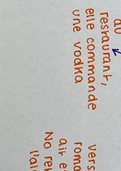 au
restaurant,
elle commande
une vodka
vers
roma
air e
No re
l'a